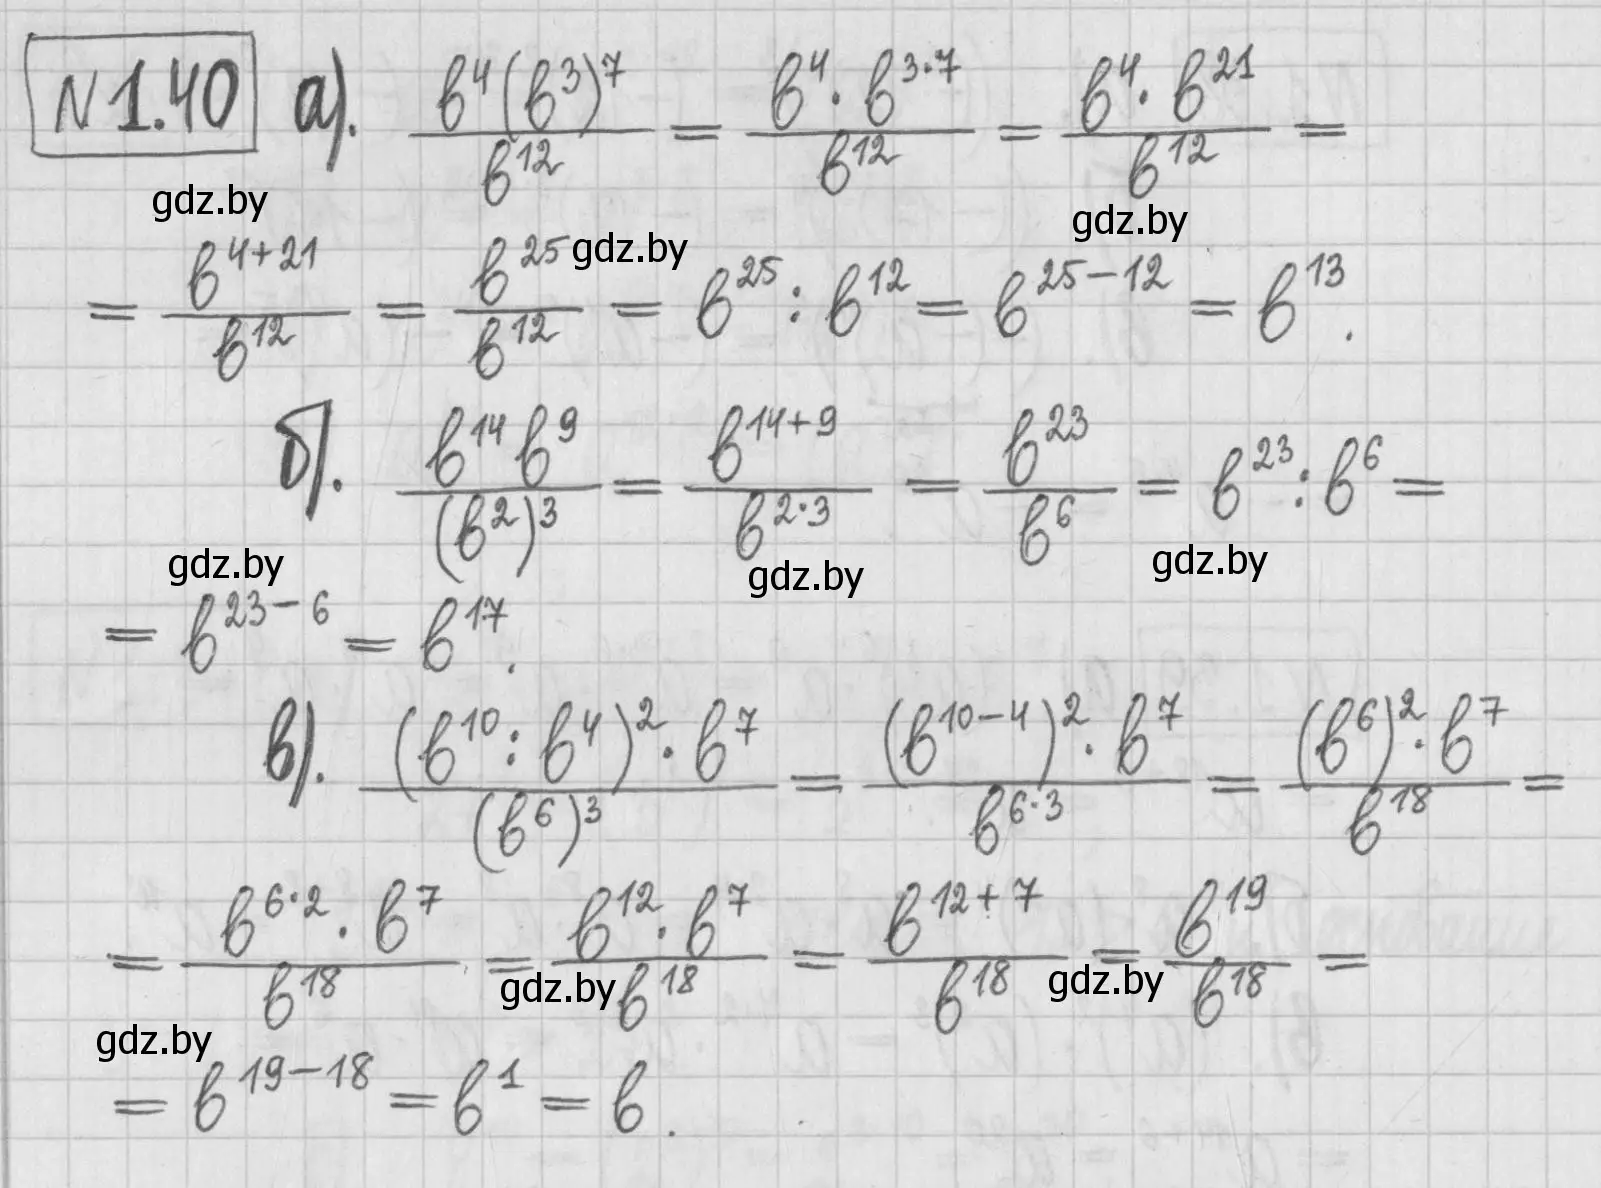 N 1.40 а). b⁴(b³)⁷/b¹² = b⁴·b³·⁷/b¹² = b⁴·b²¹/b¹² =
gdz.by gdz.by
= b⁴⁺²¹/b¹² = b²⁵/b¹² = b²⁵ : b¹² = b²⁵⁻¹² = b¹³.
gdz.by
б). b¹⁴b⁹/(b²)³ = b¹⁴⁺⁹/b²·³ = b²³/b⁶ = b²³ : b⁶ =
gdz.by gdz.by gdz.by
= b²³⁻⁶ = b¹⁷.
в). (b¹⁰ : b⁴)²·b⁷/(b⁶)³ = (b¹⁰⁻⁴)²·b⁷/b⁶·³ = (b⁶)²·b⁷/b¹⁸ =
= b⁶·²·b⁷/b¹⁸ = b¹²·b⁷/b¹⁸ = b¹²⁺⁷/b¹⁸ = b¹⁹/b¹⁸ =
gdz.by gdz.by
gdz.by
= b¹⁹⁻¹⁸ = b¹ = b.